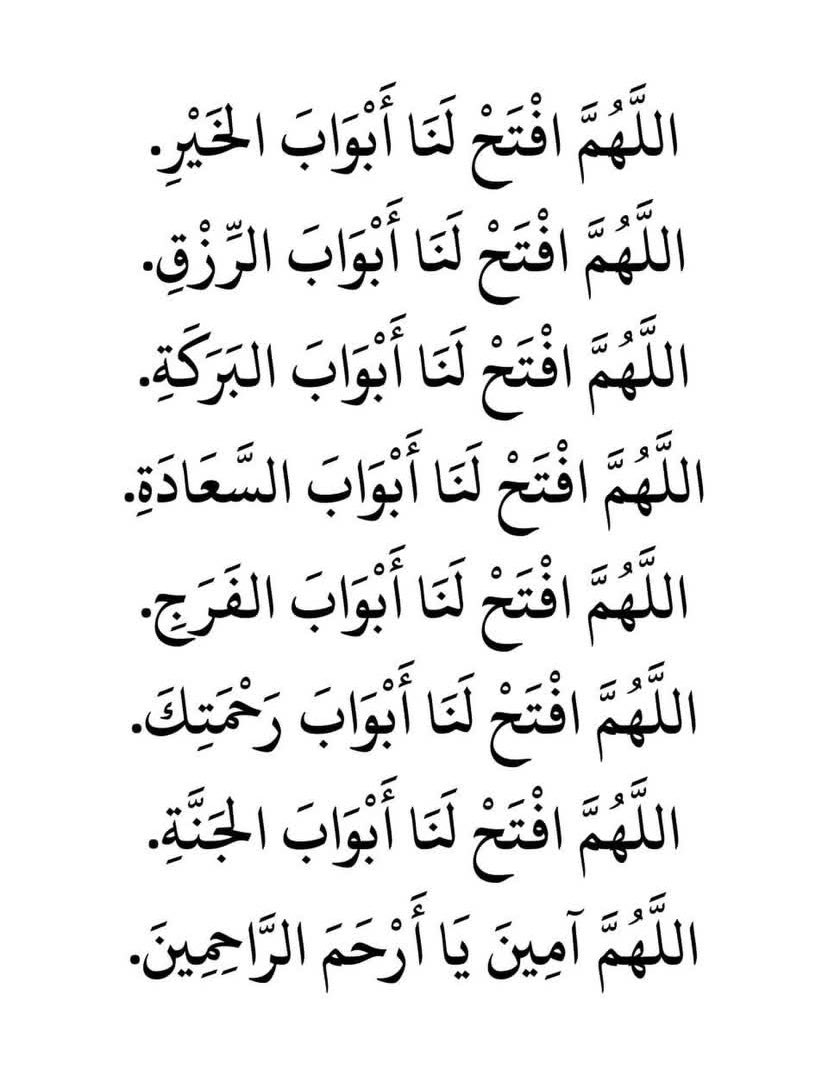 اللَّهُمَّ افْتَحْ لَنَا أَبْوَابَ الخَيْرِ.
اللَّهُمَّ افْتَحْ لَنَا أَبْوَابَ الرِّزْقِ.
اللَّهُمَّ افْتَحْ لَنَا أَبْوَابَ البَرَكَةِ.
اللَّهُمَّ افْتَحْ لَنَا أَبْوَابَ السَّعَادَةِ.
اللَّهُمَّ افْتَحْ لَنَا أَبْوَابَ الفَرَجِ.
اللَّهُمَّ افْتَحْ لَنَا أَبْوَابَ رَحْمَتِكَ.
اللَّهُمَّ افْتَحْ لَنَا أَبْوَابَ الجَنَّةِ.
اللَّهُمَّ آمِينَ يَا أَرْحَمَ الرَّاحِمِينَ.